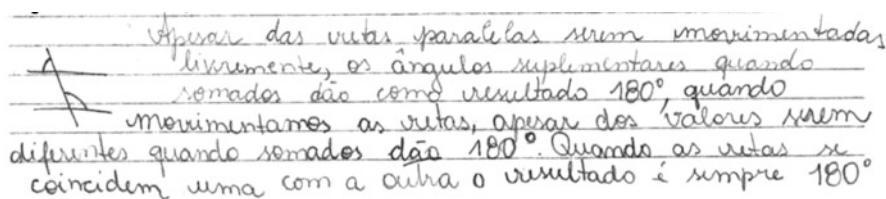 Apesar das retas paralelas serem movimentadas
livremente, os ângulos suplementares quando
somados dão como resultado 180°, quando
movimentamos as retas, apesar dos valores serem
diferentes quando somados dão 180°. Quando as retas se
coincidem uma com a outra o resultado é sempre 180°